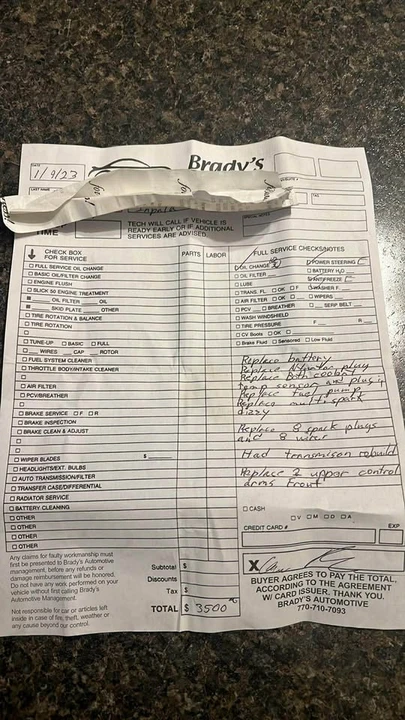 Brady's
DATE
1/9/23
LAST NAME
TIME
TECH WILL CALL IF VEHICLE IS
READY EARLY OR IF ADDITIONAL
SERVICES ARE ADVISED
CHECK BOX
FOR SERVICE
PARTS LABOR
FULL SERVICE CHECKS/NOTES
FULL SERVICE OIL CHANGE
BASIC OIL/FILTER CHANGE
ENGINE FLUSH
SLICK 50 ENGINE TREATMENT
OIL FILTER OIL
SKID PLATE OTHER
TIRE ROTATION & BALANCE
TIRE ROTATION
TUNE-UP BASIC FULL
WIRES CAP ROTOR
FUEL SYSTEM CLEANER
THROTTLE BODY/INTAKE CLEANER
AIR FILTER
PCV/BREATHER
BRAKE SERVICE F R
BRAKE INSPECTION
BRAKE CLEAN & ADJUST
WIPER BLADES $
HEADLIGHTS/EXT. BULBS
AUTO TRANSMISSION/FILTER
TRANSFER CASE/DIFFERENTIAL
RADIATOR SERVICE
BATTERY CLEANING
OTHER
OTHER
OTHER
OTHER
OIL CHANGE POWER STEERING
OIL FILTER BATTERY H2O
LUBE ANTIFREEZE
TRANS. FL OK F WASHER F
AIR FILTER OK WIPERS
PCV BREATHER SERP BELT
WASH WINDSHIELD
TIRE PRESSURE F R
CV Boots OK
Brake Fluid Sensored Low Fluid
Replace battery
Replace plug
Replace both coolant
temp sensor and plug in
Replace fuel pump
Replace multi spark
dizzy
Replace 8 spark plugs
and 8 wires
Had transmission rebuild
Replace 2 upper control
arms front
CASH
V M D A
CREDIT CARD # EXP
X
BUYER AGREES TO PAY THE TOTAL,
ACCORDING TO THE AGREEMENT
W/ CARD ISSUER. THANK YOU.
BRADY'S AUTOMOTIVE
770-710-7093
Any claims for faulty workmanship must
first be presented to Brady's Automotive
management, before any refunds or
damage reimbursement will be honored.
Do not have any work performed on your
vehicle without first calling Brady's
Automotive Management.
Not responsible for car or articles left
inside in case of fire, theft, weather or
any cause beyond our control.
Subtotal $
Discounts
Tax $
TOTAL $ 3500